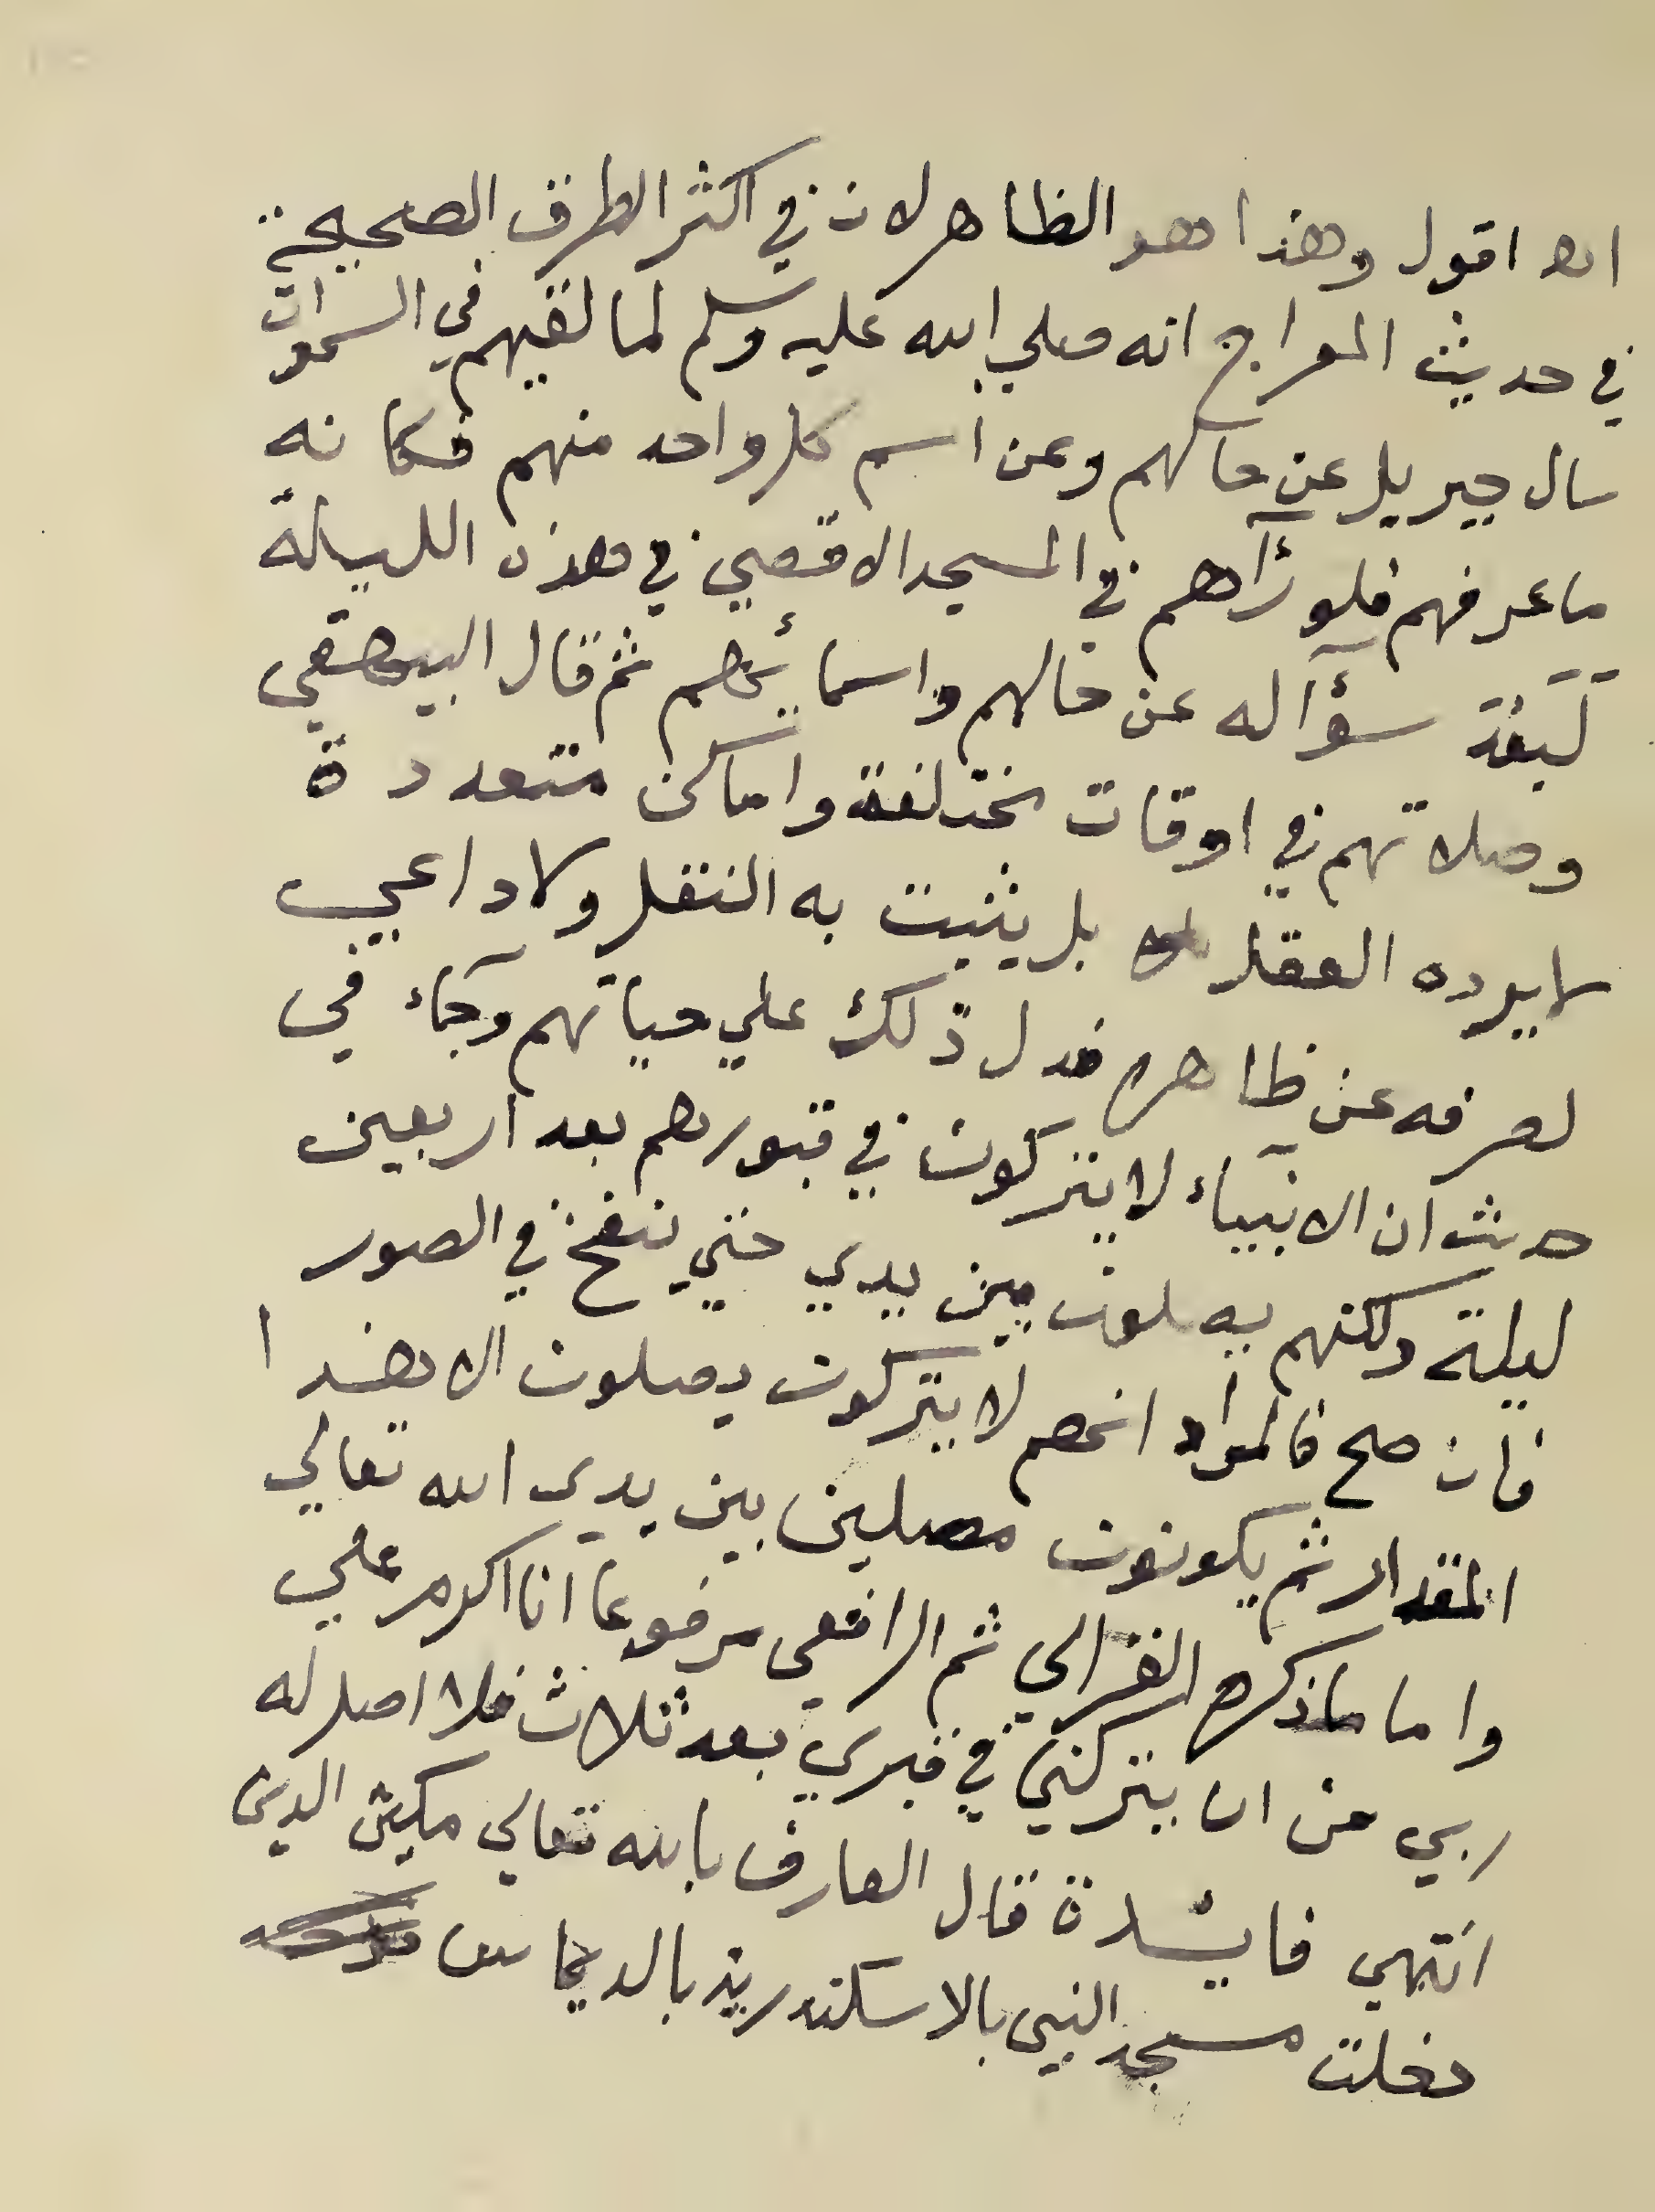 اه اقول وهذا هو الظاهر لان في اكثر الطرق الصحيحة
في حديث المعراج انه صلي الله عليه وسلم لما لقيهم في السموات
سال جبريل عن حالهم وعن اسم كل واحد منهم فكانه
ما عرفهم فلو رآهم في المسجد الاقصي في هذه الليلة
لسَبَقَ سؤآله عن حالهم واسمائهم ثم قال البيهقي
وصلاتهم في اوقات مختلفة واماكن متعددة
لا يرده العقل بل يثبت به النقل ولا داعي
لصرفه عن ظاهره فدل ذلك علي حياتهم وجآء في
حديث ان الانبيآء لا يتركون في قبورهم بعد اربعين
ليلة ولكنهم يصلون بين يدي حتي ينفخ في الصور
فان صح فالمراد انهم لا يتركون يصلون الا هذا
المقدار ثم يكونون مصلين بين يدي الله تعالي
واما ما ذكره الغزالي ثم الرافعي مرفوعا انا اكرم علي
ربي من ان يتركني في قبري بعد ثلاث فلا اصل له
انتهي فائدة قال العارف بالله تعالي مكين الدين
دخلت مسجد النبي بالاسكندرية بالديماس